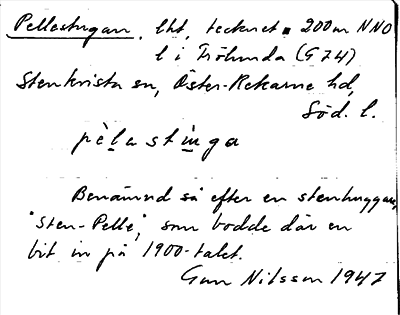 Pellastugan, lht, tecknet ▪ 200 m NNO
l i Frölunda (G 74)
Stenkvista sn, Öster-Rekarne hd,
Söd. l.
pèlastinga
Benämnd så efter en stenhuggare,
"Sten-Pelle", som bodde där en
bit in på 1900-talet.
Gun Nilsson 1947